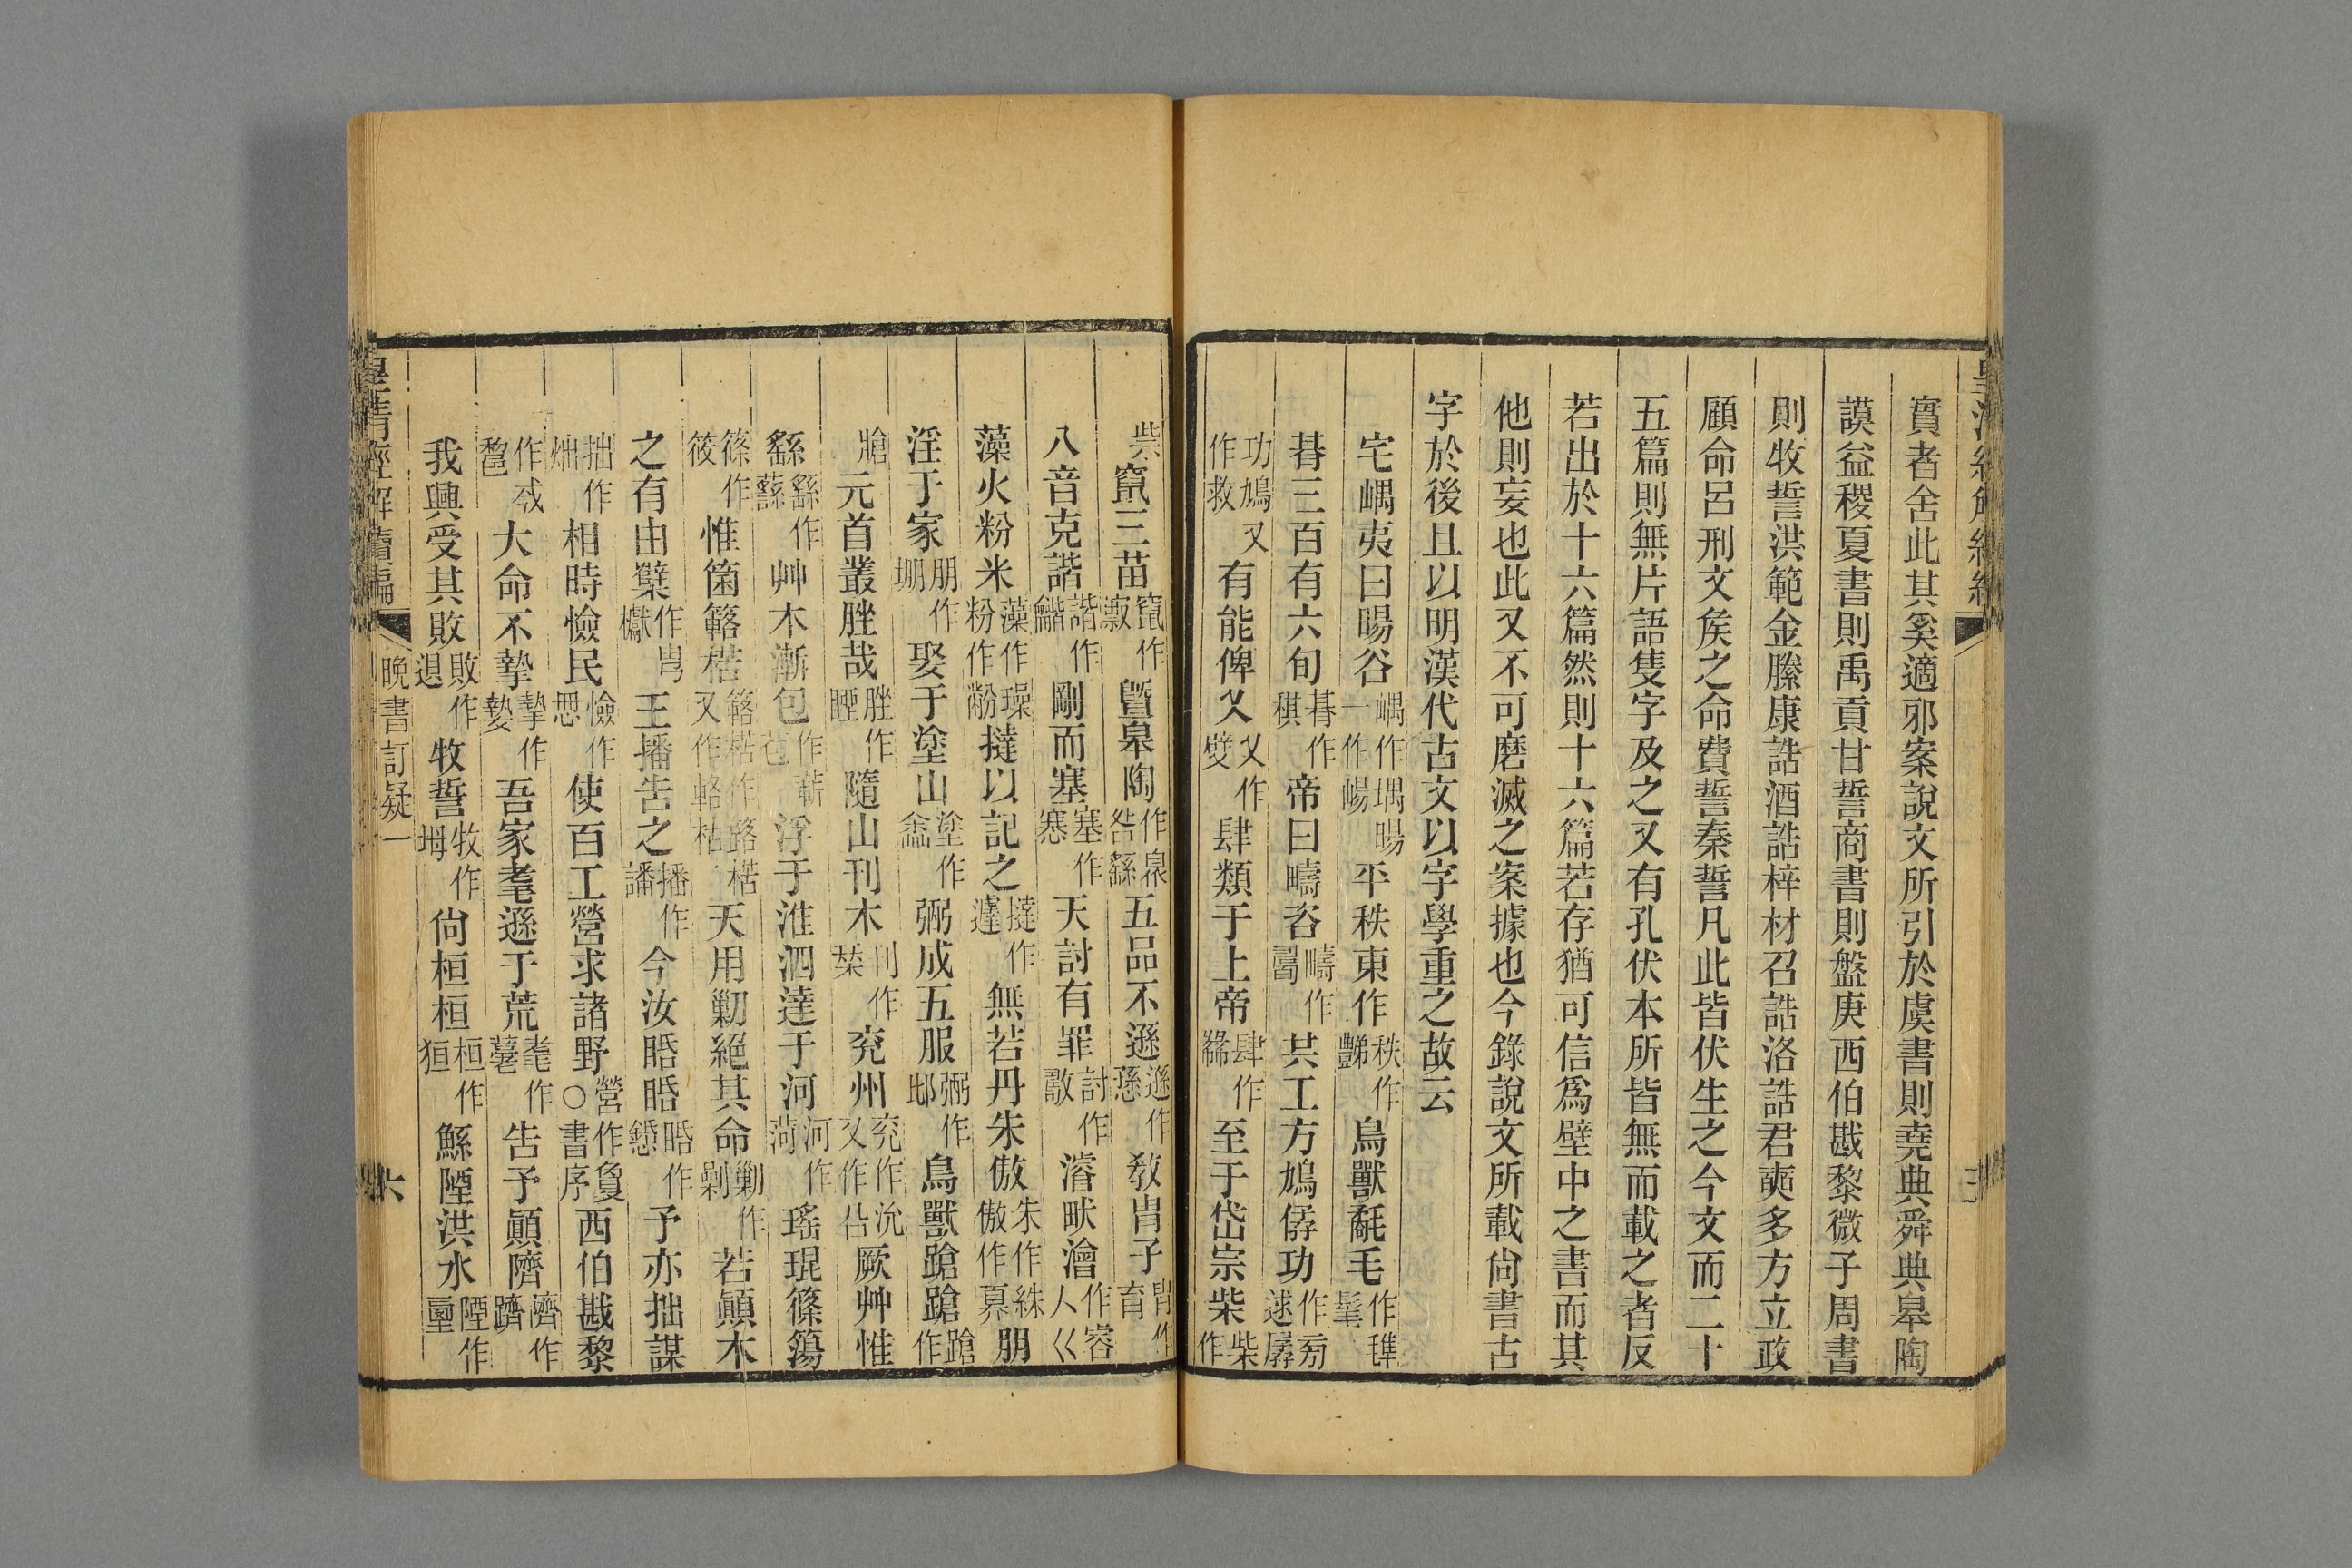 實者舍此其奚適邪案說文所引於虞書則堯典舜典皋陶
謨益稷夏書則禹貢甘誓商書則盤庚西伯戡黎微子周書
則牧誓洪範金縢康誥酒誥梓材召誥洛誥君奭多方立政
顧命呂刑文矦之命費誓秦誓凡此皆伏生之今文而二十
五篇則無片語隻字及之又有孔伏本所皆無而載之者反
若出於十六篇然則十六篇若存猶可信爲壁中之書而其
他則妄也此又不可磨滅之案據也今錄說文所載尙書古
字於後且以明漢代古文以字學重之故云
宅嵎夷曰暘谷嵎作堣暘一作崵平秩東作秩作豑鳥獸氄毛作㲨髦
朞三百有六旬朞作稘帝曰疇咨疇作共工方鳩僝功作㫄逑孱
功鳩又作救有能俾乂乂作嬖肆類于上帝肆作𥛱至于岱宗柴柴作
祡竄三苗竄作𡫏曁皋陶作咎繇五品不遜遜作愻敎胄子胄作育
八音克諧諧作龤剛而塞塞作𡫳天討有罪討作濬畎澮作睿人巜
藻火粉米藻作璪粉作黺撻以記之撻作無若丹朱傲朱作絑傲作奡朋
淫于家朋作堋娶于塗山塗作嵞弼成五服弼作邶鳥獸蹌蹌蹌作
牄元首叢脞哉脞作脭隨山刊木刊作栞兖州兖作沇又作㕣厥艸惟
繇繇作蘨艸木漸包作蔪苞浮于淮泗達于河河作菏瑤琨篠簜
篠作筱惟箘簵楛簵楛作路楛又作輅枯天用勦絕其命勦作剿若顚木
之有由櫱作㽕𣡌王播吿之播作譒今汝聒聒聒作予亦拙謀
拙作𤈦相時憸民憸作思使百工營求諸野營作敻○書序西伯戡黎
作㦵𨛫大命不摯摯作㚔吾家耄遜于荒耄作吿予顚隮隮作躋
我興受其敗敗作退牧誓牧作坶尙桓桓桓作狟鯀陻洪水陻作垔
皇淸經解續編
晚書訂疑一
六